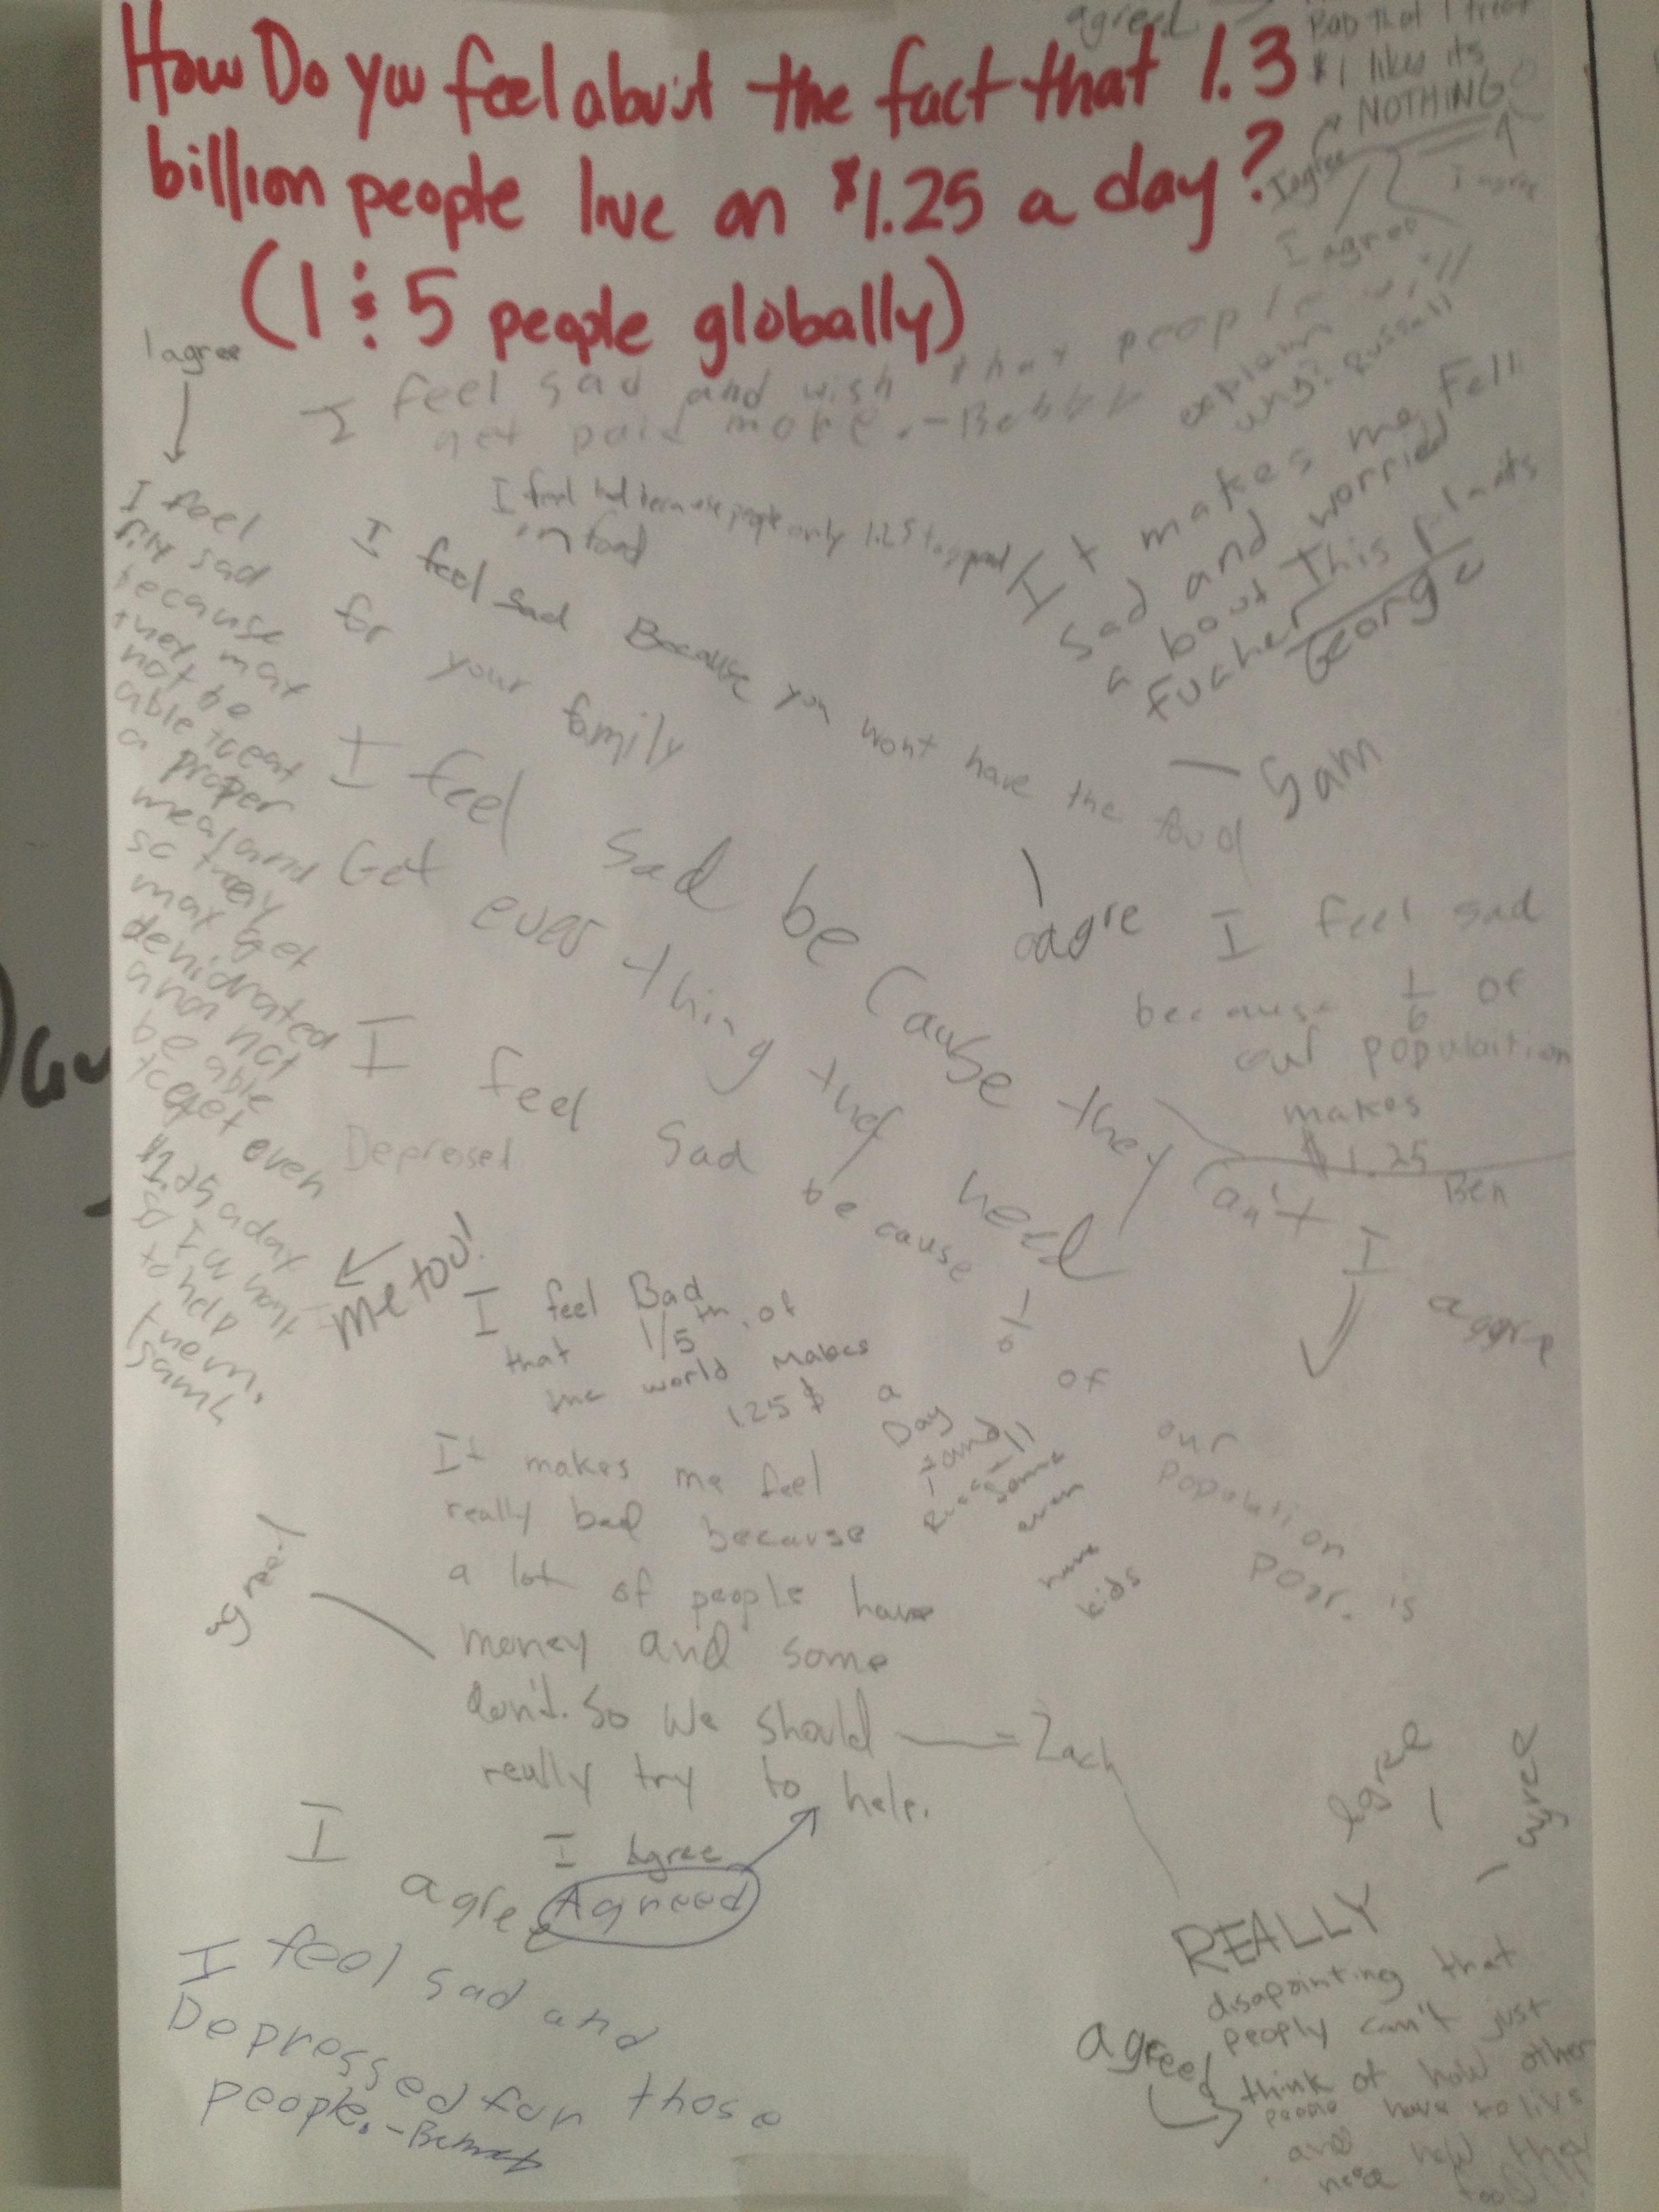 How Do you feel about the fact that 1.3
billion people live on $1.25 a day?
(1 in 5 people globally)
agreed
that I treat
$1 likes its
NOTHING
I agree
I agree
I agree
I agree
I feel sad and wish that people will
get paid more. -
explain
why? Russell
I feel bad because people only 1.25 to spend
on food
It makes me fell
sad and worried
about This plants
fucher
George
- Sam
I feel
sad
because
they may
not be
able to eat
a proper
meal and
so they
may get
dehidrated
and not
be able
to get even
$1.25 a day
so I want
to help
them.
Sam L
me too!
I feel sad Because you wont have the food
for your family
agre
I feel sad be Cause they Can't
Get ever thing they need
I feel sad
because 1/6 of
our populaition
makes
$1.25
Ben
I aggre
I feel sad because 1/6 of our population is
poor.
Depressed
I feel Bad
that 1/5th of
the world makes
1.25$ a
Day
and
some
even
have
kids
Russell
It makes me feel
really bad because
a lot of people have
money and some
don't. So we should
really try to help.
Zach
agree
I agree
I agree
Agreed
I feel sad and
Depressed for those
people. -
agree
agree
REALLY
disapointing that
peoply can't just
think of how other
people have to live
and how they
need food!!!
agreed